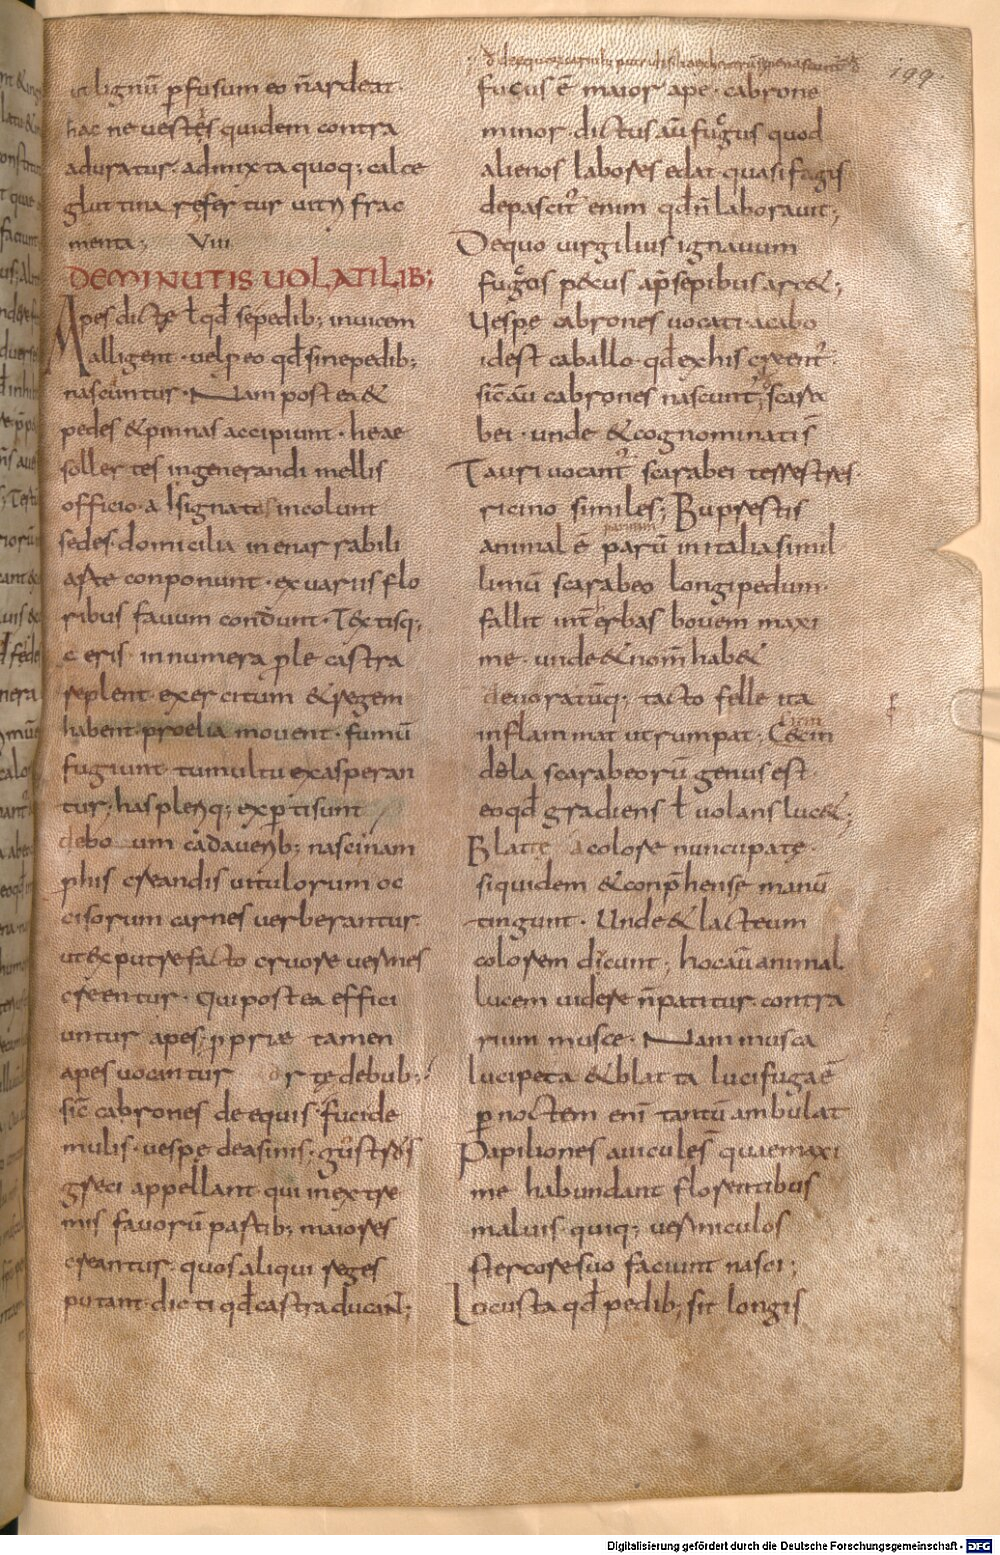 ut lignũ ꝑfusum eo ñ ardeat.
hac ne uestes quidem contra
aduratur. admixta quoq; calce
gluttina refertur uitri frac
menta; VIII
DE MINUTIS UOLATILIB;
Apes dictę ł qđ se pedib; inuicem
alligent. uel ꝑ eo qđ sine pedib;
nascuntur. Nam postea &
pedes & pinnas accipiunt. heae
sollertes in generandi mellis
officio. adsignatas incolunt
sedes. domicilia inenarrabili
arte conponunt. ex uariis flo
ribus fauum condunt. Textisq;
ceris. innumera ple castra
replent. exercitum & regem
habent. proelia mouent. fumũ
fugiunt. tumultu exasperan
tur; has pleriq; exꝑti sunt
de boum cadauerib; nasci nam
phis creandis uitulorum oc
cisorum carnes uerberantur.
ut ex putrefacto cruore uermes
creentur. qui postea effici
untur apes. ꝓpriae tamen
apes uocantur ortę de bub;
sic̃ cabrones de equis. fuci de
mulis. uespę de asinis.
greci appellant qui in extre
mis fauorũ partib; maiores
creantur. quos aliqui reges
putant. dicti qđ castra ducant;
199.
fucus ẽ maior ape. cabrone
minor. dictus aũ fugus quod
alienos labores edat. quasi fagus
depascit᷑ enim qđ ñ laborauit;
De quo uirgilius ignauum
fugos pecus a p̃sepibus arcet;
Uespę cabrones uocati a cabo
id est caballo. qđ ex his creent᷑.
sic̃ aũ cabrones nascunt᷑; scara
bei. unde & cognominatis
Tauri uocant᷑ scarabei terrestres.
ricino similes; Buprestis
animal ẽ parũ in italia simil
limũ scarabeo longipedum.
fallit int̃ erbas bouem maxi
me. unde & nom̃ hab&
deuoratũq; tacto felle ita
inflammat ut rumpat; Cecin
dela scarabeorũ genus est.
eo qđ gradiens ł uolans luc&;
Blattę a colore nuncupatę.
siquidem & conp̃hensę manũ
tingunt. Unde & lacteum
colorem dicunt; hoc aũ animal
lucem uidere ñ patitur. contra
rium muscę. Nam musca
lucipeta & blatta lucifuga ẽ
ꝑ noctem eni tantũ ambulat
Papiliones auiculę s̃ quae maxi
me habundant florentibus
maluis. quiq; uermiculos
stercore suo faciunt nasci;
Locusta qđ pedib; sit longis
Digitalisierung gefördert durch die Deutsche Forschungsgemeinschaft - DFG